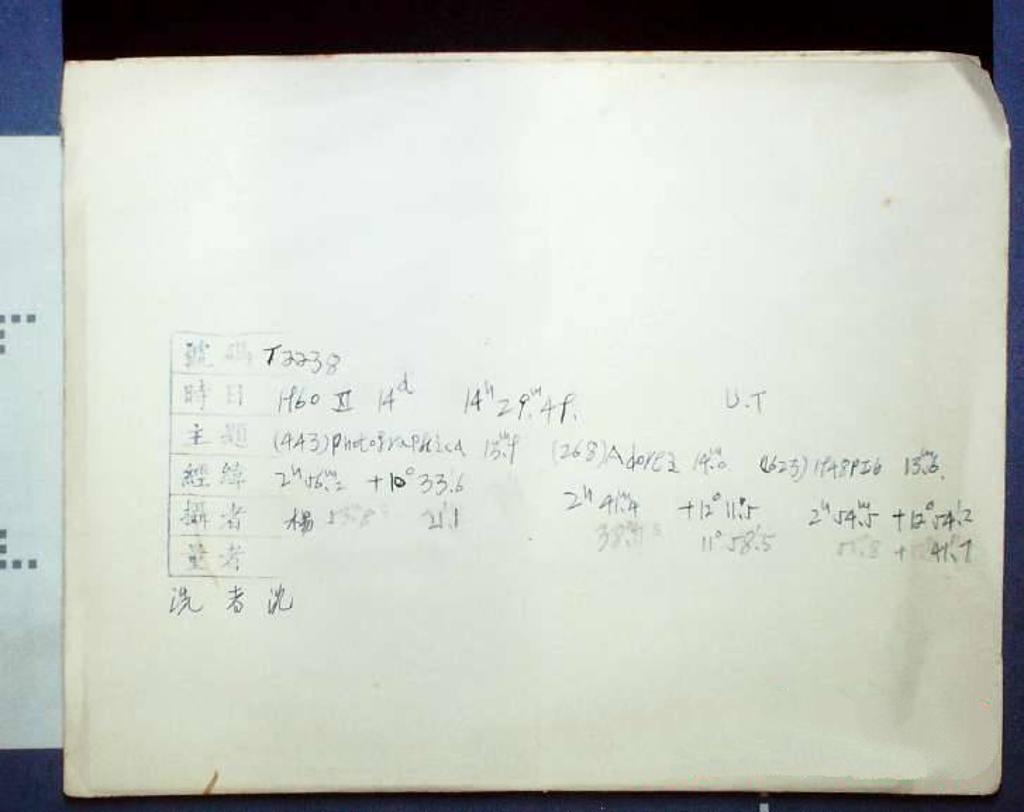 號碼 T2238
時日 1960 XI 14ᵈ 14ʰ 29ᵐ.49. U.T
主題 (443) Photographica 13ᵐ.9 (268) Adorea 14ᵐ.0 (1623) 1948PZ6 13ᵐ.6
經緯 2ʰ 56ᵐ.2 +10° 33'.6 2ʰ 41ᵐ.4 +12° 11'.5 2ʰ 54ᵐ.5 +12° 54'.2
攝者 楊 21'.1 11° 58'.5 41'.7
量者
洗者 沈